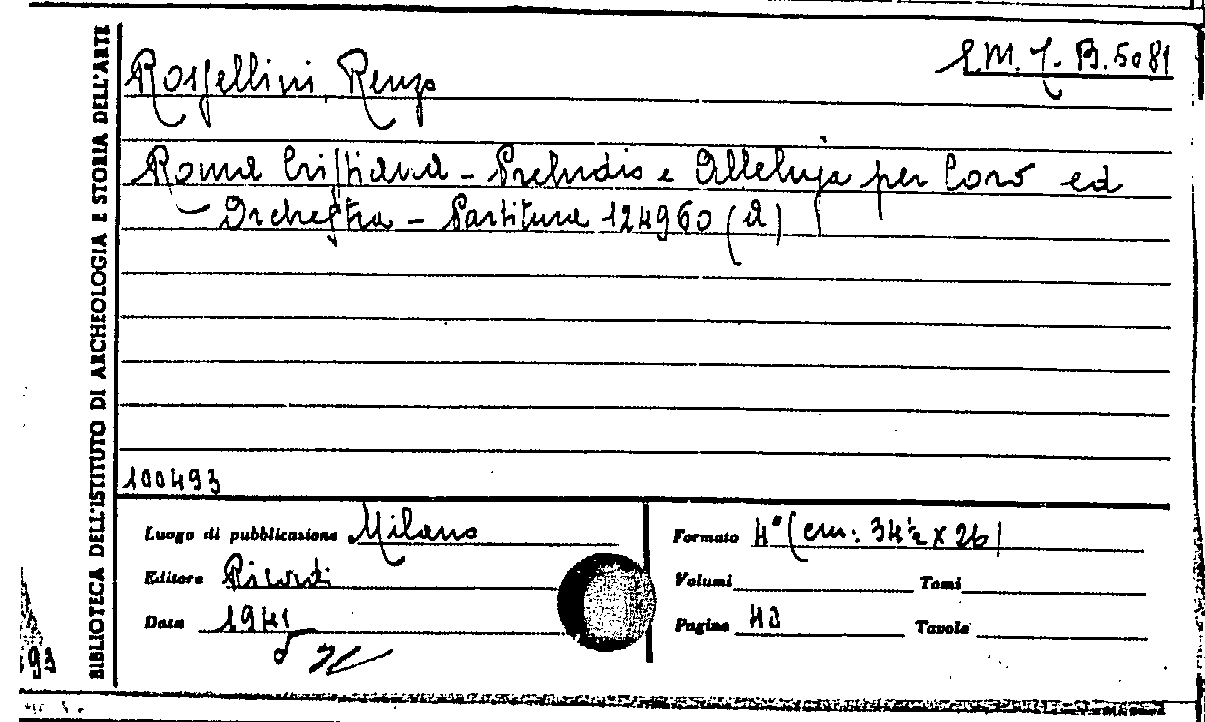 BIBLIOTECA DELL'ISTITUTO DI ARCHEOLOGIA E STORIA DELL'ARTE
Rossellini Renzo
S.M. J. B. 5081
Roma Cristiana - Preludio e Alleluja per Coro ed
Orchestra - Partitura 124960 (2)
100493
Luogo di pubblicazione Milano
Editore Ricordi
Data 1941
Formato 4° (cm: 34½ x 26)
Volumi Tomi
Pagine 42 Tavole
93